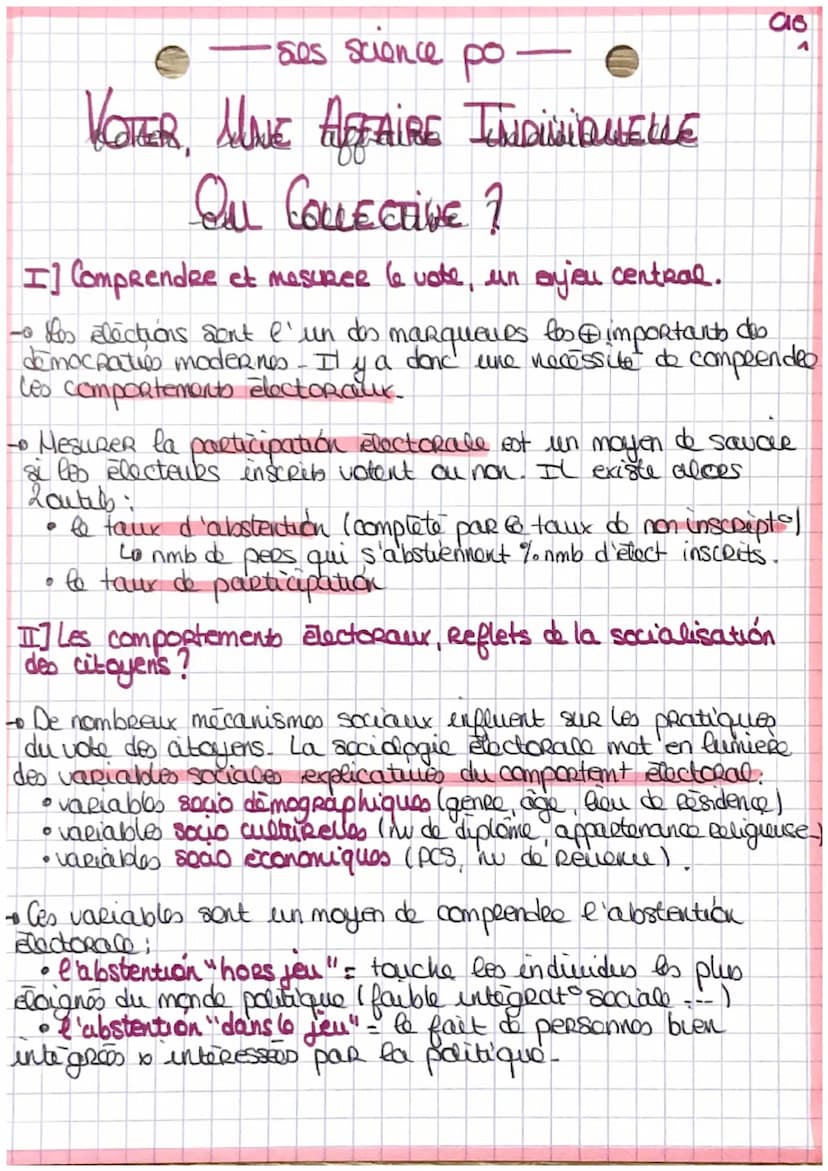 Q8
1
— SES science po —
VOTER, UNE AFFAIRE INDIVIDUELLE
OU COLLECTIVE ?
I] Comprendre et mesurer le vote, un enjeu central.
→ Les élections sont l'un des marqueurs les ⊕ importants des
démocraties modernes - Il y a donc une nécessité de comprendre
les comportements électoraux.
→ Mesurer la participation électorale est un moyen de savoir
si les électeurs inscrits votent ou non. Il existe alors
2 outils :
• le taux d'abstention (complété par le taux de non inscript°)
↳ nmb de pers qui s'abstiennent % nmb d'élect inscrits.
• le taux de participation
II] Les comportements électoraux, reflets de la socialisation
des citoyens ?
→ De nombreux mécanismes sociaux influent sur les pratiques
du vote des citoyens. La sociologie électorale met en lumière
des variables sociales explicatives du comportemt électoral :
• variables socio démographiques (genre, âge, lieu de résidence)
• variables socio culturelles (nv de diplôme, appartenance religieuse)
• variables socio économiques (PCS, nv de revenu).
→ Ces variables sont un moyen de comprendre l'abstention
électorale :
• l'abstention "hors jeu" = touche les individus les plus
éloignés du monde politique (faible intégrat° sociale ...)
• l'abstention "dans le jeu" = le fait de personnes bien
intégrées & intéressées par la politique -